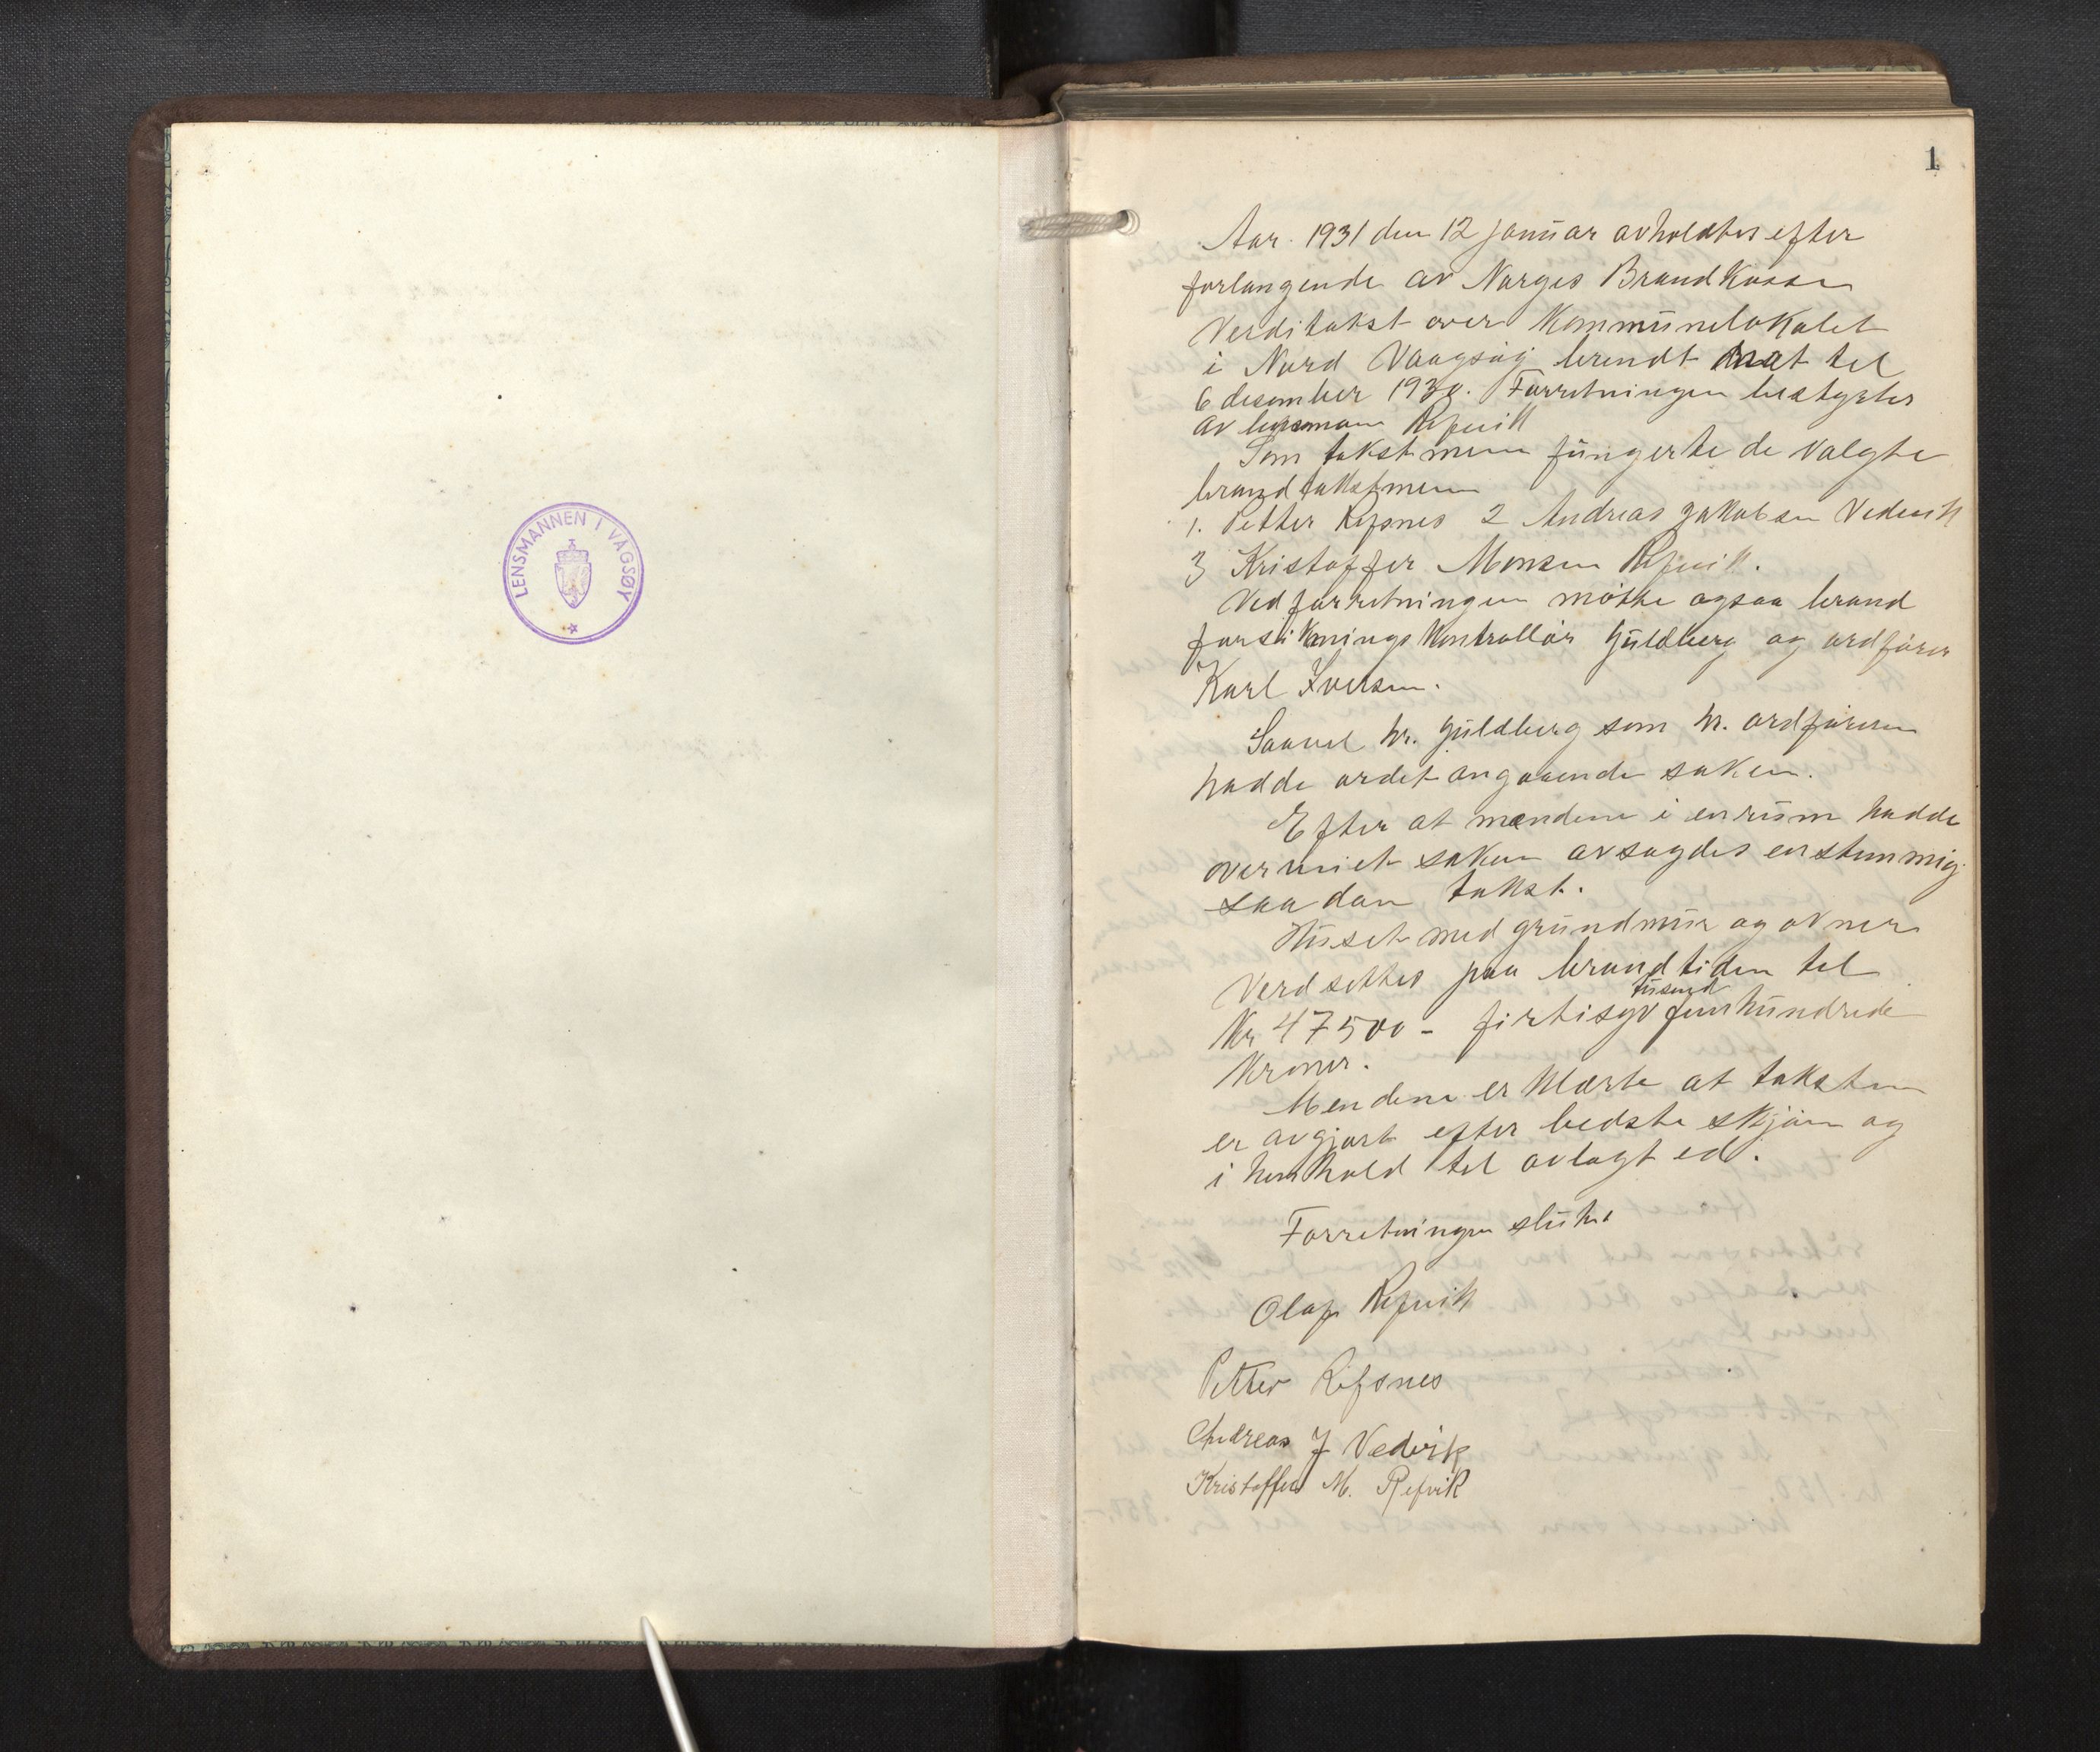 LENSMANNEN I VÅGSØY
1
Aar. 1931 den 12 januar avholdtes efter
forlangende av Norges Brandkasse
Verditakst over Kommunelokalet
i Nord Vaagsøy brendt nat til
6 desember 1930. Forretningen bestyrtes
av lensmann Refvik
Som takstmenn fungerte de valgte
brandtakstmenn
1. Petter Refsnes 2 Andreas Jakobsen Vedvik
3 Kristoffer Monsen Refvik.
Ved forretningen møtte ogsaa brand
forsikringskontrollør Guldberg og ordfører
Karl Iversen.
Saavel hr. Guldberg som hr. ordføreren
hadde ordet angaaende saken.
Efter at mændene i enrum hadde
overveiet saken avsagdes enstemmig
saadan takst.
Huset med grundmur og ovner
verdsettes paa brandtiden til
tusend
Kr 47500 - firtisyv femhundrede
Kroner.
Mendene erklærte at taksten
er avgjort efter bedste skjøn og
i henhold til avlagt ed.
Forretningen sluttet
Olaf Refvik
Petter Refsnes
Andreas J Vedvik
Kristoffer M. Refvik